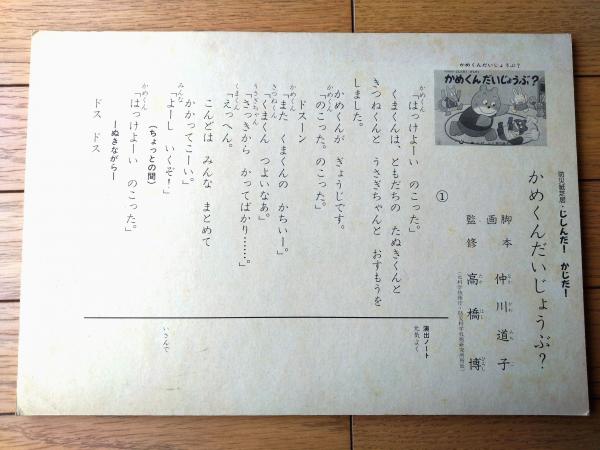 かめくんだいじょうぶ?
かめくんだいじょうぶ?
防災紙芝居・じしんだ! かじだ!
かめくんだいじょうぶ?
脚本 画 仲川道子
監修 高橋 博
①
かめくん
「はっけよーい のこった。」
くまくんは、ともだちの たぬきくんと
きつねくんと うさぎちゃんと おすもうを
しました。
かめくんが ぎょうじです。
かめくん
「のこった。のこった。」
ドスーン
かめくん
「また くまくんの かちぃー。」
きつねくん
「くまくん つよいなあ。」
うさぎちゃん
「さっきから かってばかり……。」
くまくん
「えっへん。
こんどは みんな まとめて
かかってこーい。」
みんな
「よーし いくぞ!」
(ちょっとの間)
かめくん
「はっけよーい のこった。」
―ぬきながら―
ドス ドス
演出ノート
元気よく
いさんで